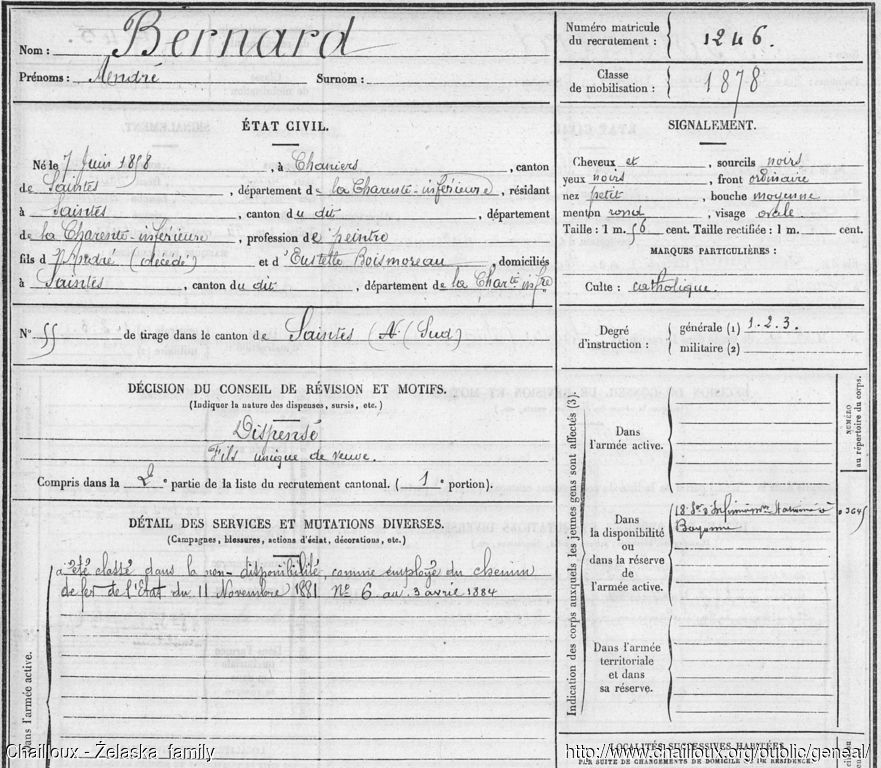 Nom : Bernard
Prénoms : André Surnom :
Numéro matricule
du recrutement : 1246.
Classe
de mobilisation : 1878
ÉTAT CIVIL.
Né le 7 Juin 1858, à Chaniers, canton
de Saintes, département de la Charente-inférieure, résidant
à Saintes, canton du dit, département
de la Charente-inférieure, profession de peintre
fils d'André (décédé) et d'Eustelle Boismoreau, domiciliés
à Saintes, canton du dit, département de la Charte infre
N° 55 de tirage dans le canton de Saintes (N. (Sud)
SIGNALEMENT.
Cheveux et, sourcils noirs
yeux noirs, front ordinaire
nez petit, bouche moyenne
menton rond, visage ovale.
Taille : 1 m. 56 cent. Taille rectifiée : 1 m. cent.
MARQUES PARTICULIÈRES :
Culte : catholique.
Degré
d'instruction :
générale (1) 1.2.3.
militaire (2)
DÉCISION DU CONSEIL DE RÉVISION ET MOTIFS.
(Indiquer la nature des dispenses, sursis, etc.)
Dispensé
Fils unique de veuve.
Compris dans la 2e partie de la liste du recrutement cantonal. (1e portion).
DÉTAIL DES SERVICES ET MUTATIONS DIVERSES.
(Campagnes, blessures, actions d'éclat, décorations, etc.)
a été classé dans la non-disponibilité, comme employé du chemin
de fer de l'Etat du 11 Novembre 1881 N° 6 au 3 avril 1884
Dans l'armée active.
Indication des corps auxquels les jeunes gens sont affectés (3).
NUMÉRO
au répertoire du corps.
Dans
l'armée active.
Dans
la disponibilité
ou
dans la réserve
de
l'armée active.
18e Son d'Infirmiers à
Bayonne
Dans l'armée
territoriale
et dans
sa réserve.
LOCALITÉS SUCCESSIVES HABITÉES
PAR SUITE DE CHANGEMENTS DE DOMICILE OU DE RÉSIDENCE.
Chailloux - Żelaska family
http://www.chailloux.org/public/geneal/